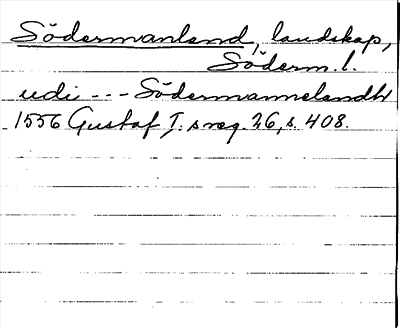 Södermanland, landskap,
Söderm. l.
udi --- Södermannelandh
1556 Gustaf I.s reg. 26, s. 408.